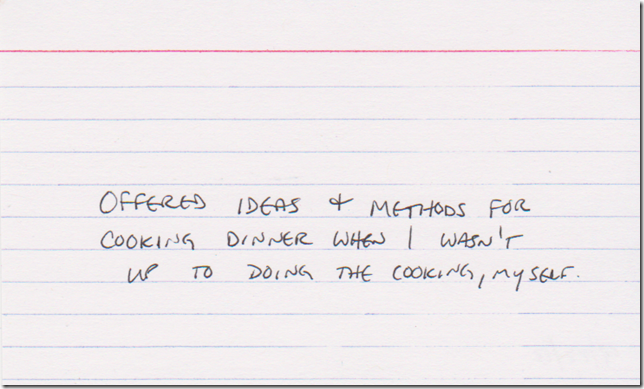 OFFERED IDEAS & METHODS FOR
COOKING DINNER WHEN I WASN'T
UP TO DOING THE COOKING, MYSELF.